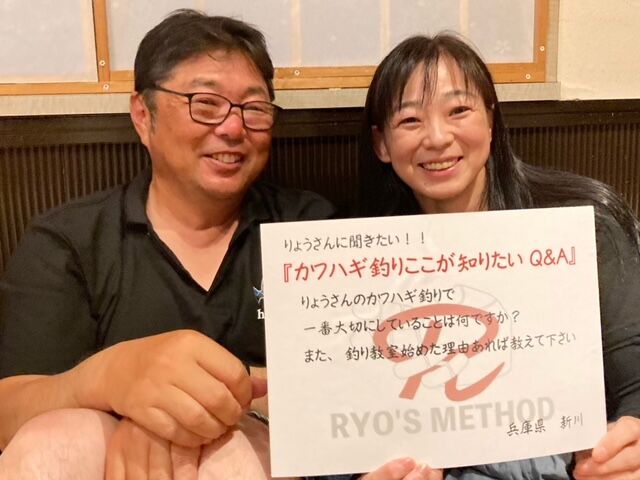 りょうさんに聞きたい！！
『カワハギ釣りここが知りたい Q&A』
りょうさんのカワハギ釣りで
一番大切にしていることは何ですか？
また、釣り教室始めた理由あれば教えて下さい
R
RYO'S METHOD
兵庫県 新川